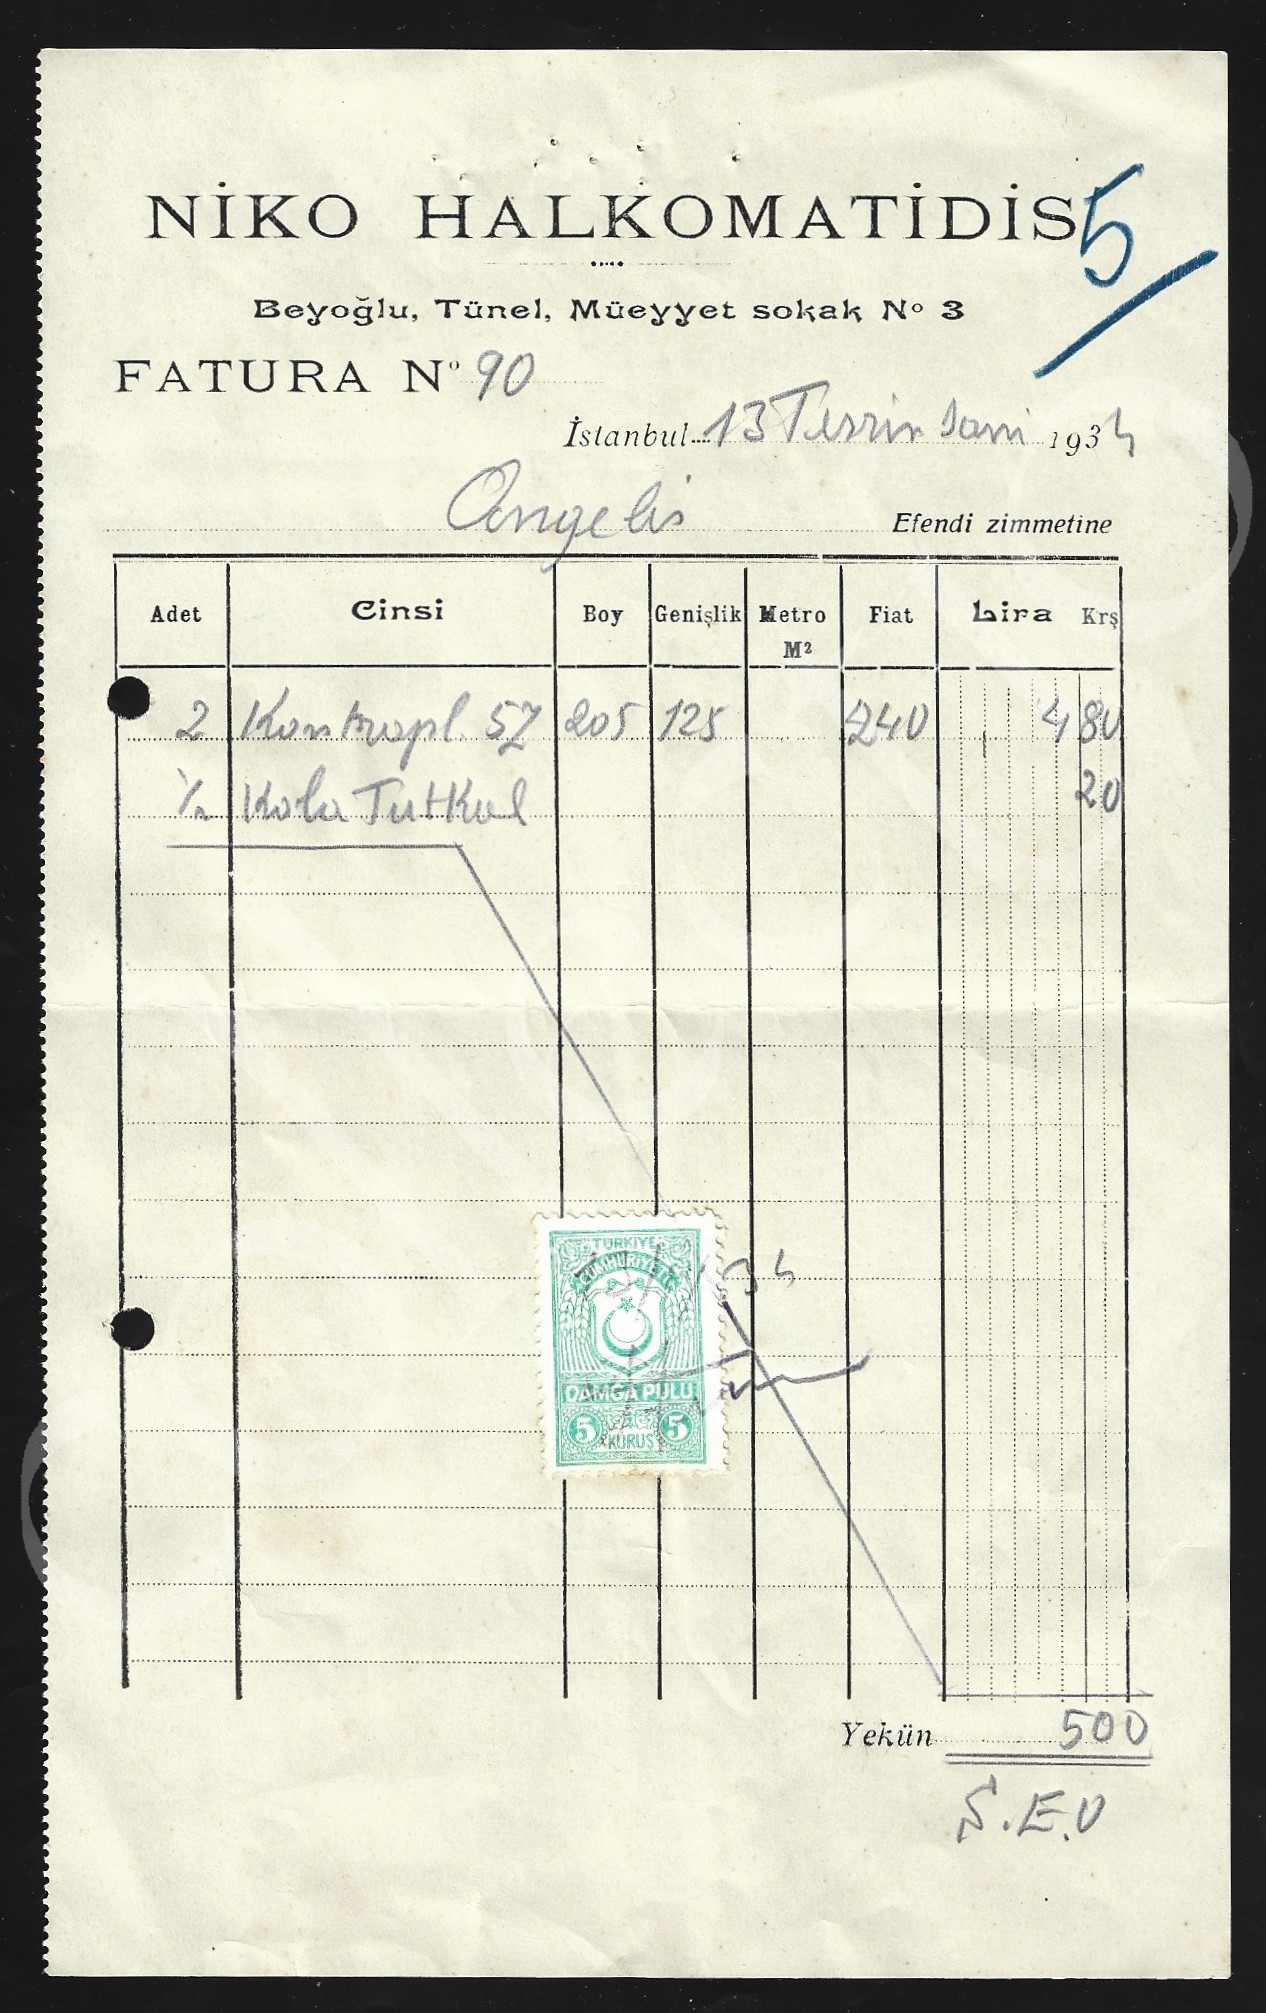 NİKO HALKOMATİDİS
5
Beyoğlu, Tünel, Müeyyet sokak Nº 3
FATURA Nº 90
İstanbul 13 Tesrin sani 1934
Angelis Efendi zimmetine
Adet Cinsi Boy Genişlik Metro M² Fiat Lira Krş
2 Kontrapl. 5Z 205 125 240 4 80
1/2 Kola Tutkal 20
TÜRKİYE
CUMHURİYETİ
34
DAMGA PULU
5 KURUŞ 5
Yekün 500
S.E.O